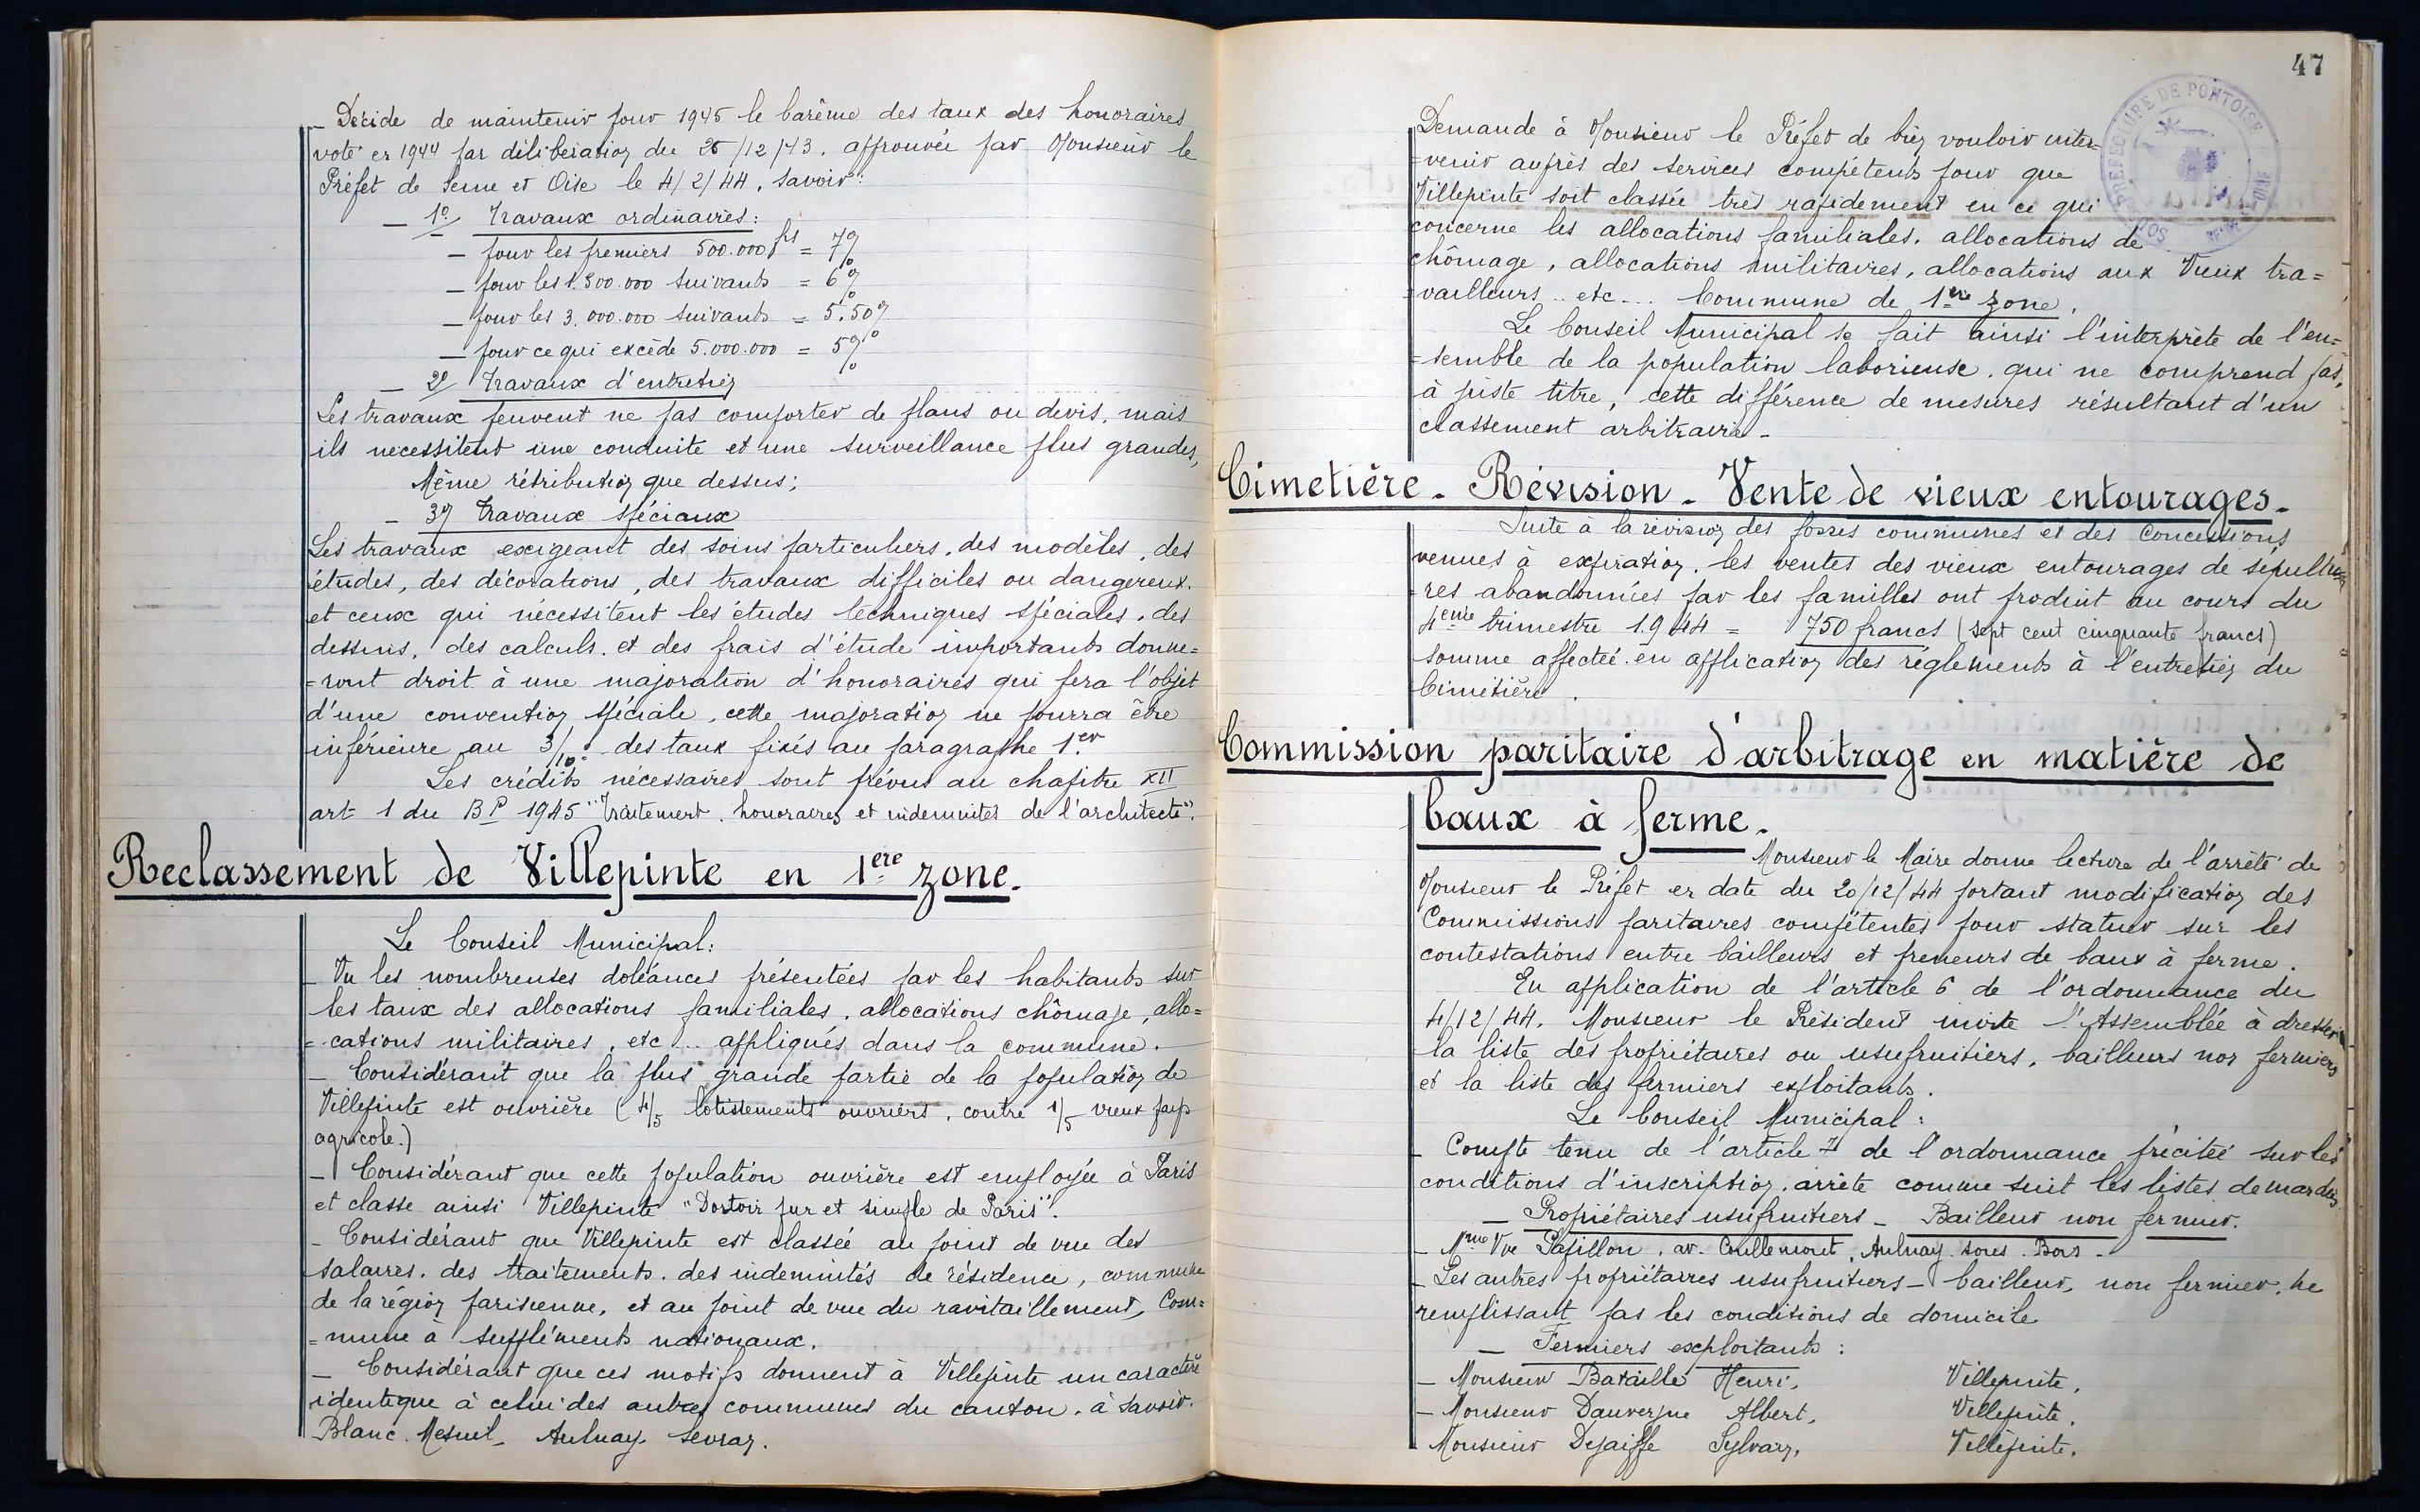 _ Décide de maintenir pour 1945 le barême des taux des honoraires
voté en 1944 par délibération du 28/12/43, approuvée par Monsieur le
Préfet de Seine et Oise le 4/2/44, savoir:
_ 1º/ Travaux ordinaires:
_ pour les premiers 500.000 frs = 7%
_ pour les 1.500.000 suivants = 6%
_ pour les 3.000.000 suivants = 5.50%
_ pour ce qui excède 5.000.000 = 5%
_ 2º/ Travaux d'entretien
Les travaux peuvent ne pas comporter de plans ou devis, mais
ils nécessitent une conduite et une surveillance plus grandes,
Même rétribution que dessus;
_ 3º/ Travaux spéciaux
Les travaux exigeant des soins particuliers, des modèles, des
études, des décorations, des travaux difficiles ou dangereux.
et ceux qui nécessitent les études techniques spéciales, des
dessins, des calculs, et des frais d'étude importants donne=
=ront droit à une majoration d'honoraires qui fera l'objet
d'une convention spéciale, cette majoration ne pourra être
inférieure au 3/10º des taux fixés au paragraphe 1er
Les crédits nécessaires sont prévus au chapitre XII
art 1 du BP 1945 "Traitement, honoraires et indemnités de l'architecte".
Reclassement de Villepinte en 1ère zone.
Le Conseil Municipal:
_ Vu les nombreuses doléances présentées par les habitants sur
les taux des allocations familiales, allocations chômage, allo=
=cations militaires, etc... appliqués dans la commune.
_ Considérant que la plus grande partie de la population de
Villepinte est ouvrière (4/5 lotissements ouvriers, contre 1/5 vieux pays
agricole.)
_ Considérant que cette population ouvrière est employée à Paris
et classe ainsi Villepinte "Dortoir pur et simple de Paris".
_ Considérant que Villepinte est classée au point de vue des
salaires, des traitements, des indemnités de résidence, commune
de la région parisienne, et au point de vue du ravitaillement, Com=
=mune à suppléments nationaux.
_ Considérant que ces motifs donnent à Villepinte un caractère
identique à celui des autres communes du canton, à savoir.
Blanc Mesnil, Aulnay, Sevran.
47
SOUS PREFECTURE DE PONTOISE
Demande à Monsieur le Préfet de bien vouloir inter=
=venir auprès des services compétents pour que
Villepinte soit classée très rapidement en ce qui
concerne les allocations familiales, allocations de
chômage, allocations militaires, allocations aux Vieux tra=
=vailleurs .. etc... Commune de 1ère zone.
Le Conseil Municipal se fait ainsi l'interprète de l'en=
=semble de la population laborieuse, qui ne comprend pas,
à juste titre, cette différence de mesures résultant d'un
classement arbitraire _
Cimetière. Révision. Vente de vieux entourages.
Suite à la révision des fosses communes et des Concessions
venues à expiration, les ventes des vieux entourages de sépultu=
=res abandonnées par les familles ont produit au cours du
4ème trimestre 1944 = 750 francs (sept cent cinquante francs)
somme affectée en application des réglements à l'entretien du
Cimetière.
Commission paritaire d'arbitrage en matière de
baux à ferme.
Monsieur le Maire donne lecture de l'arrêté de
Monsieur le Préfet en date du 20/12/44 portant modification des
Commissions paritaires compétentes pour statuer sur les
contestations entre bailleurs et preneurs de baux à ferme.
En application de l'article 6 de l'ordonnance du
4/12/44. Monsieur le Président invite l'Assemblée à dresser
la liste des propriétaires ou usufruitiers, bailleurs non fermiers
et la liste des fermiers exploitants.
Le Conseil Municipal:
_ Compte tenu de l'article 7 de l'ordonnance précitée sur les
conditions d'inscription, arrête comme suit les listes demandées
_ Propriétaires usufruitiers _ Bailleur non fermier.
_ Mme Vve Papillon, av. Coullemont, Aulnay sous Bois _
_ Les autres propriétaires usufruitiers _ bailleur, non fermier, ne
remplissant pas les conditions de domicile
_ Fermiers exploitants:
_ Monsieur Bataille Henri, Villepinte,
_ Monsieur Dauvergne Albert, Villepinte,
_ Monsieur Dejaiffe Sylvain, Villepinte.